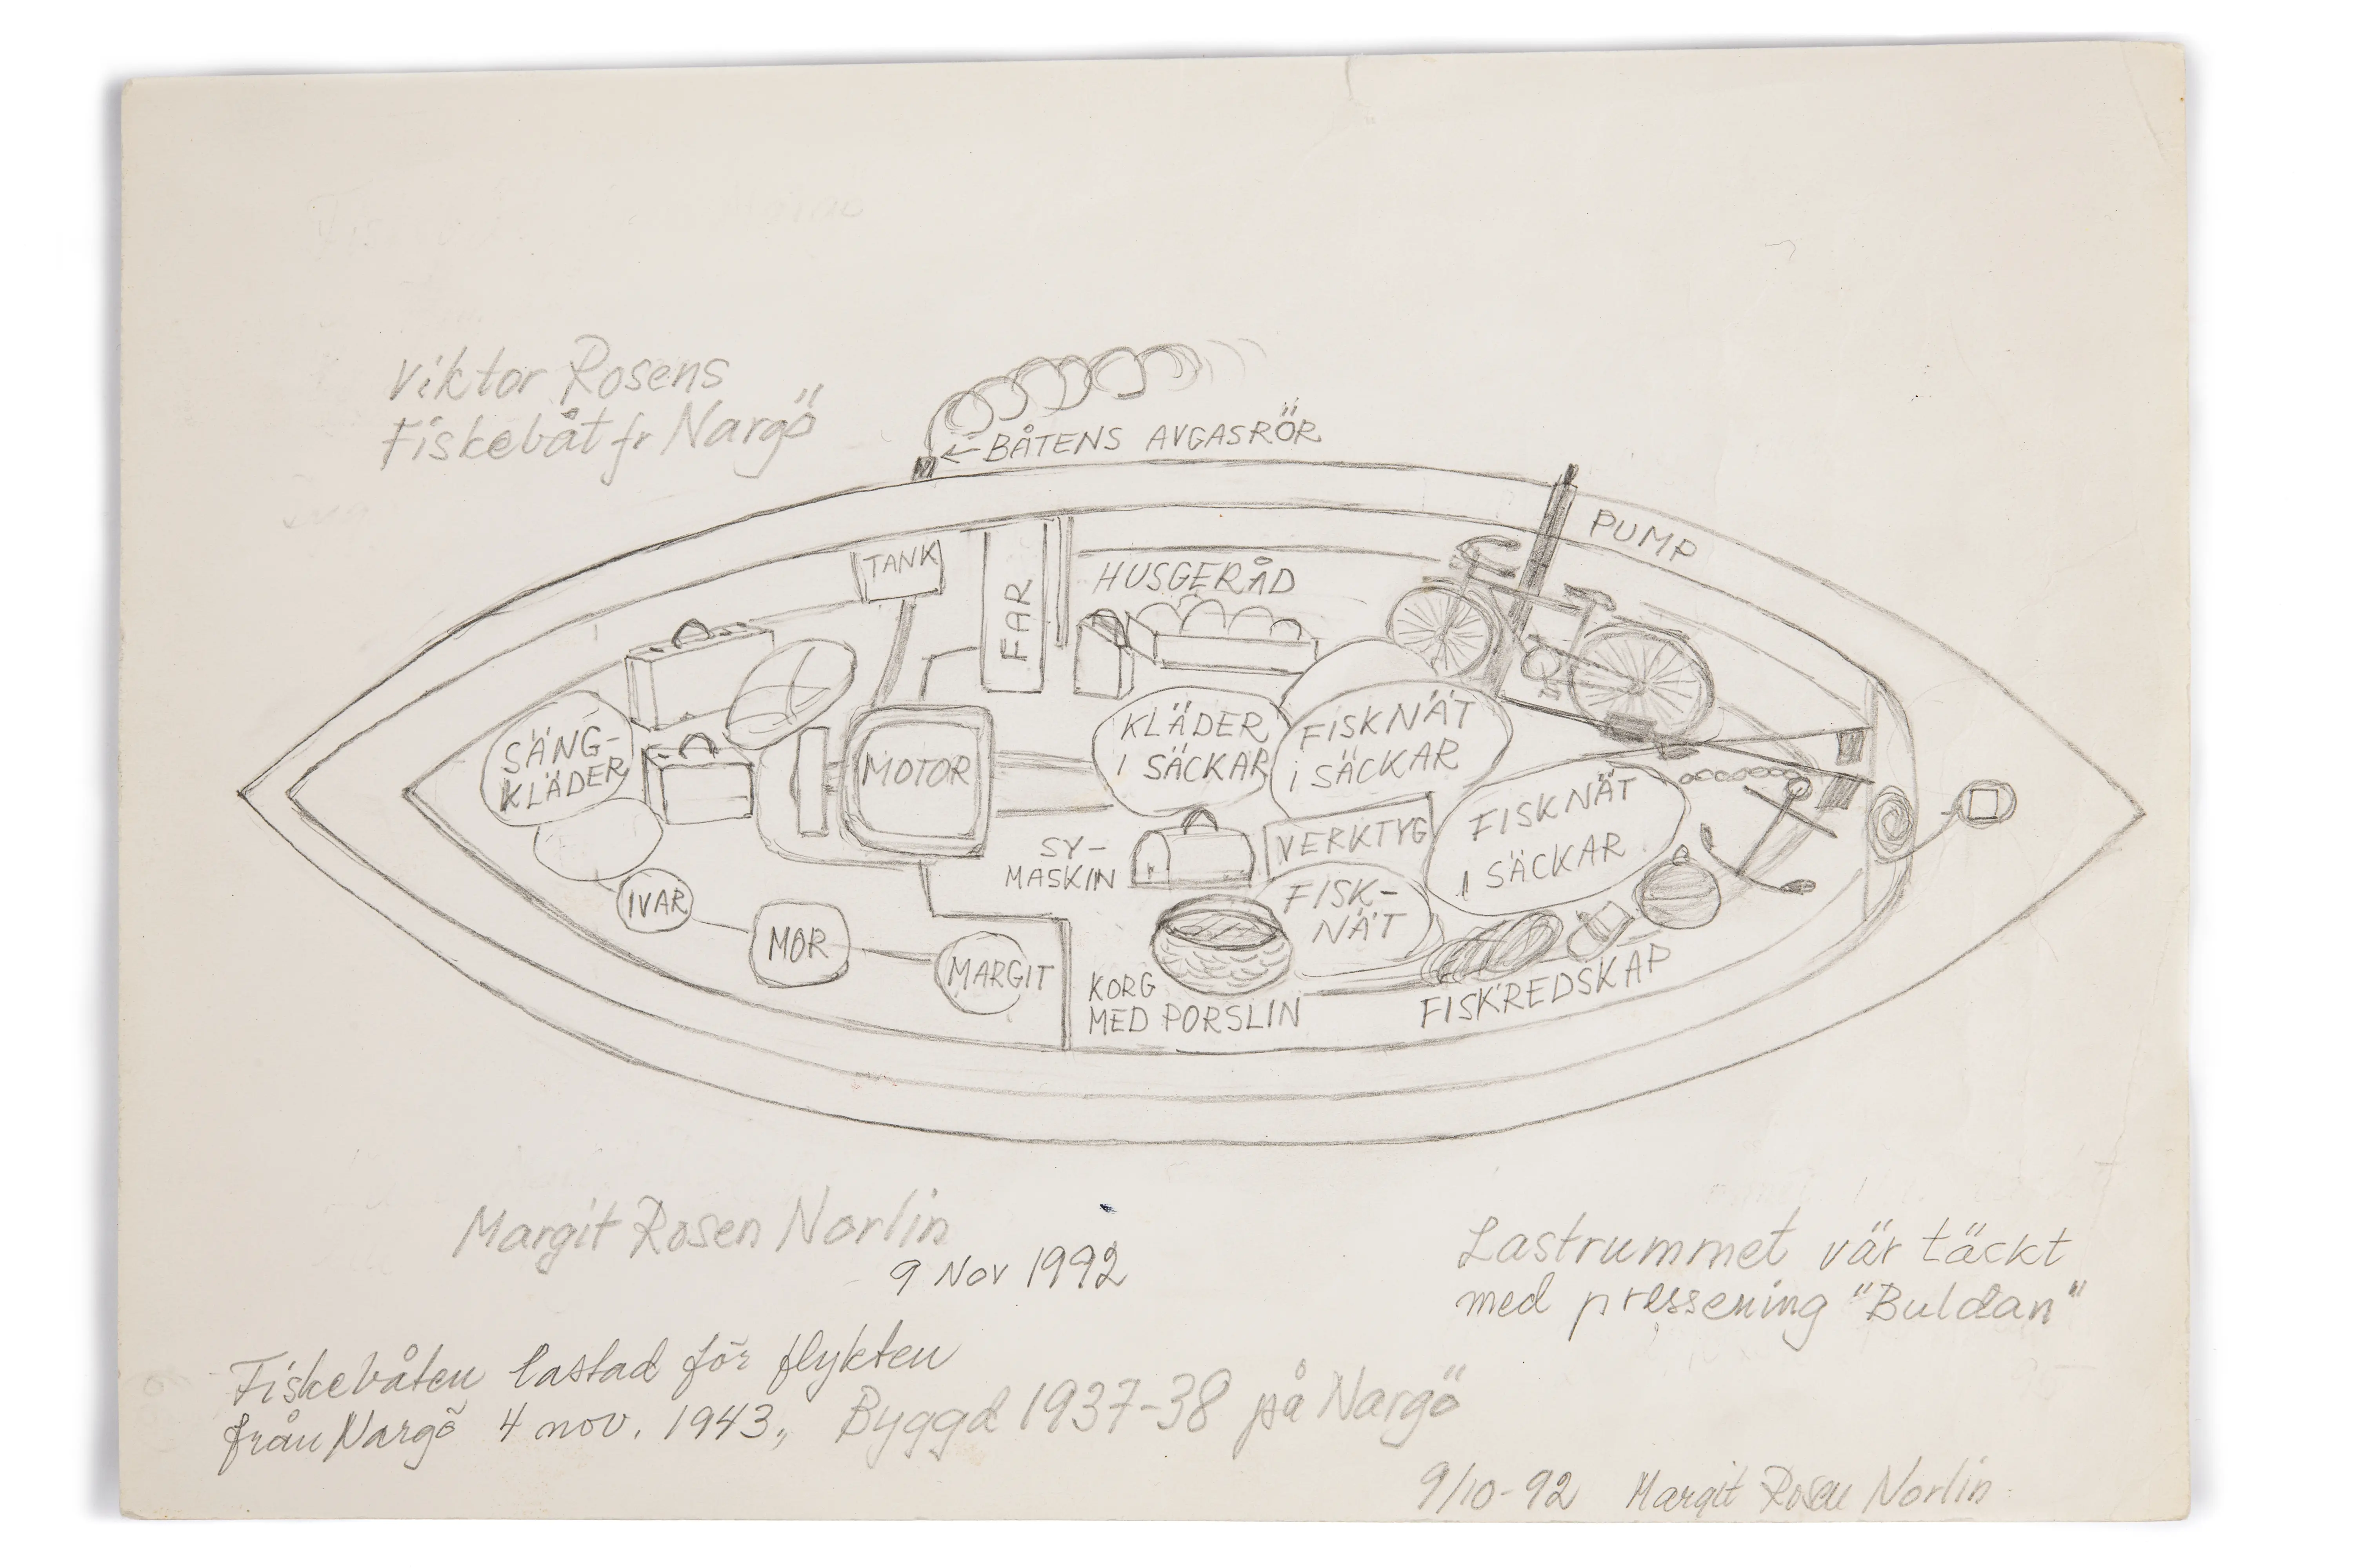 Viktor Rosens
Fiskebåt fr Nargö
← BÅTENS AVGASRÖR
PUMP
TANK
FAR
HUSGERÅD
SÄNG-
KLÄDER
MOTOR
KLÄDER
I SÄCKAR
FISKNÄT
i SÄCKAR
FISKNÄT
I SÄCKAR
SY-
MASKIN
VERKTYG
FISK-
NÄT
IVAR
MOR
MARGIT
KORG
MED PORSLIN
FISKREDSKAP
Margit Rosen Norlin
9 Nov 1992
Lastrummet vär täckt
med pressening "Buldan"
Fiskebåten lastad för flykten
från Nargö 4 nov. 1943., Byggd 1937-38 på Nargö
9/10-92 Margit Rosen Norlin